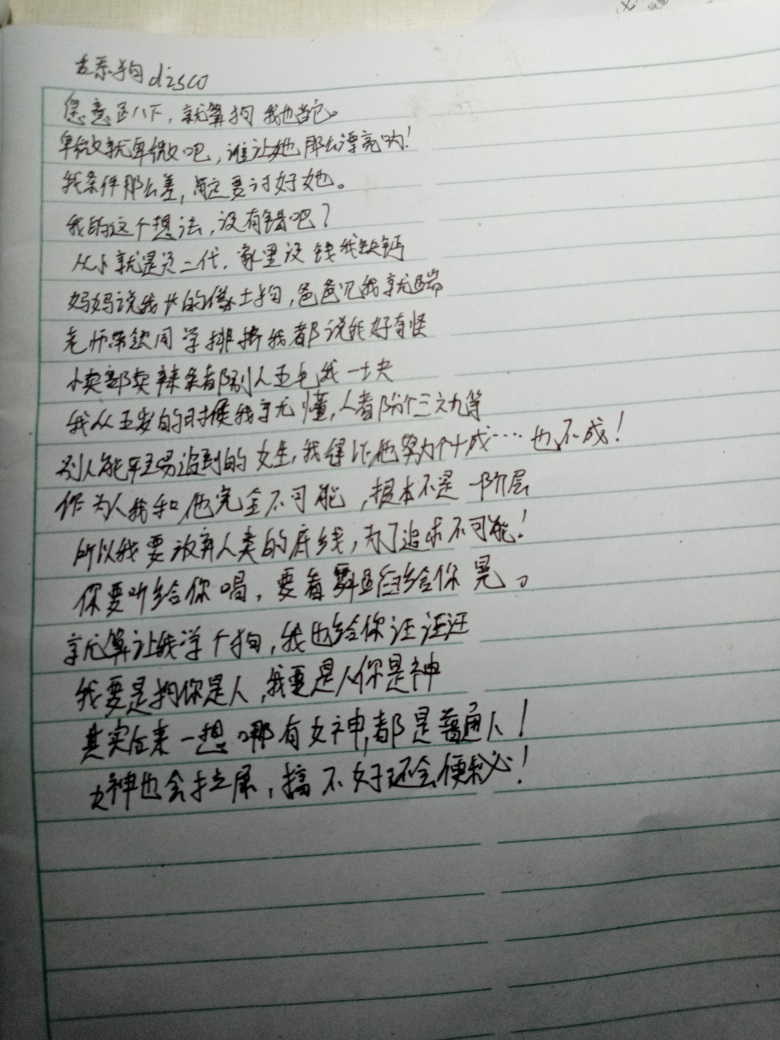 舔狗disco
就算狗 我也当它。
卑微就卑微吧，谁让她那么漂亮呐！
我条件那么差，肯定要讨好她。
我的这个想法，没有错吧？
从小就是负二代，家里没钱我缺钙
妈妈说我长的像土狗，爸爸见我就踹
老师带领同学排挤我都说我好奇怪
小卖部卖辣条都别人五毛我一块
我从五岁的时候我就懂，人都分个三六九等
别人能轻易追到的女生，我得 他努力个十成…也不成！
作为人我和他完全不可能，根本不是一阶层
所以我要放弃人类的底线，为了追求不可能！
你要听给你唱，要看舞 给你晃。
就算让我学个狗，我也给你汪汪汪
我要是狗你是人，我要是人你是神
其实后来一想哪有女神，都是普通人！
女神也会拉屎，搞不好还会便秘！